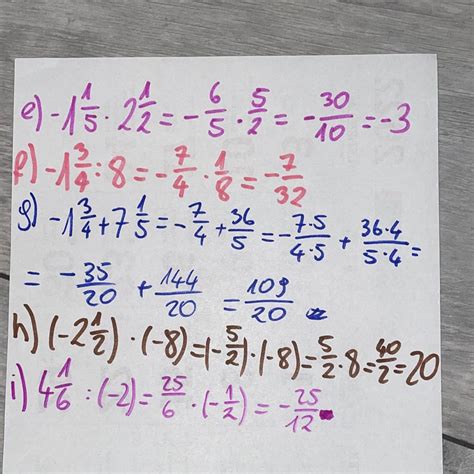 e) -1 1/5 · 2 1/2 = - 6/5 · 5/2 = - 30/10 = -3
f) -1 3/4 : 8 = - 7/4 · 1/8 = - 7/32
g) -1 3/4 + 7 1/5 = - 7/4 + 36/5 = - 7·5/4·5 + 36·4/5·4 =
= - 35/20 + 144/20 = 109/20
h) (-2 1/2) · (-8) = (- 5/2) · (-8) = 5/2 · 8 = 40/2 = 20
i) 4 1/6 : (-2) = 25/6 · (- 1/2) = - 25/12